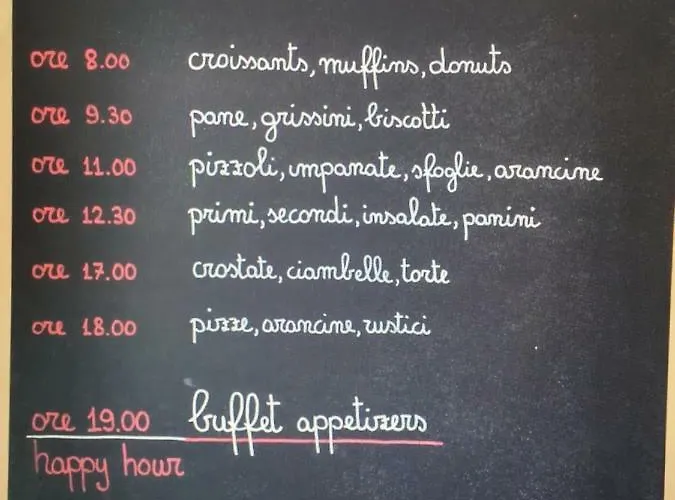 ore 8.00 croissants, muffins, donuts
ore 9.30 pane, grissini, biscotti
ore 11.00 pizzoli, impanate, sfoglie, arancine
ore 12.30 primi, secondi, insalate, panini
ore 17.00 crostate, ciambelle, torte
ore 18.00 pizze, arancine, rustici
ore 19.00 buffet appetizers
happy hour